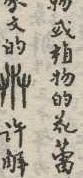 物或植物的花蕾
文的 许解